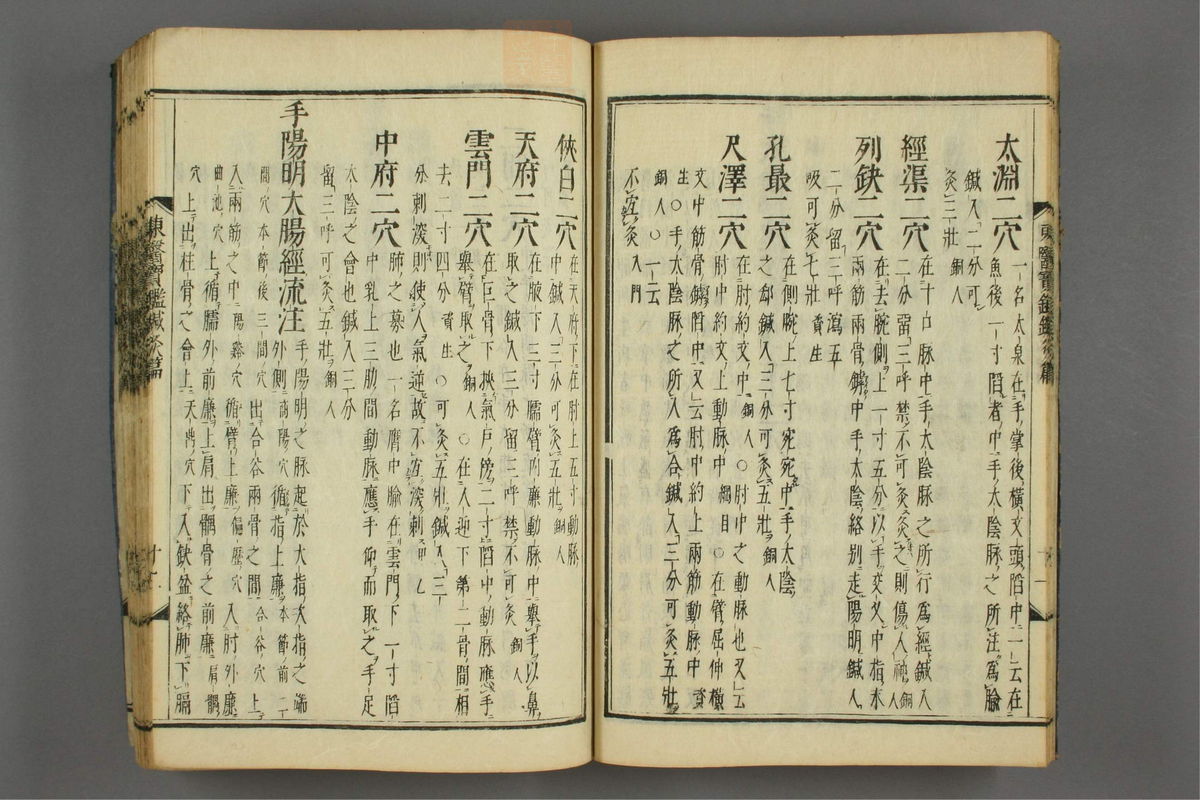 太淵二穴一名太泉在手掌後橫文頭陷中一云在
魚後一寸陷者中手太陰脉之所注爲腧
鍼入二分可
灸三壯銅人
經渠二穴在寸口脉中手太陰脉之所行爲經鍼入
二分留三呼禁不可灸灸之則傷人神銅人
列缺二穴在去腕側上一寸五分以手交叉中指末
兩筋兩骨罅中手太陰絡別走陽明鍼入
二分留三呼瀉五
吸可灸七壯資生
孔最二穴在側腕上七寸宛宛中手太陰
之郄鍼入三分可灸五壯銅人
尺澤二穴在肘約文中銅人○肘中之動脉也又云
肘中約文上動脉中綱目○在臂屈伸橫
文中筋骨罅陷中又云肘中約上兩筋動脉中資
生○手太陰脉之所入爲合鍼入三分可灸五壯
銅人○一云
不宜灸入門
俠白二穴在天府下在肘上五寸動脉
中鍼入三分可灸五壯銅人
天府二穴在腋下三寸臑臂內廉動脉中擧手以鼻
取之鍼入三分留三呼禁不可灸銅人
雲門二穴在巨骨下挾氣戶傍二寸陷中動脉應手
擧臂取之銅人○在人迎下第二骨間相
去二寸四分資生○可灸五壯鍼入三
分刺深則使人氣逆故不宜深刺甲乙
中府二穴肺之募也一名膺中腧在雲門下一寸陷
中乳上三肋間動脉應手仰而取之手足
太陰之會也鍼入三分
留三呼可灸五壯銅人
手陽明大腸經流注手陽明之脉起於大指大指之端
外側商陽穴循指上廉本節前二
間穴本節後三間穴出合谷兩骨之間合谷穴上
入兩筋之中陽谿穴循臂上廉偏歷穴入肘外廉
曲池穴上循臑外前廉上肩出髃骨之前廉肩髃
穴上出柱骨之會上天鼎穴下入缺盆絡肺下膈
東醫寶鑑鍼灸篇